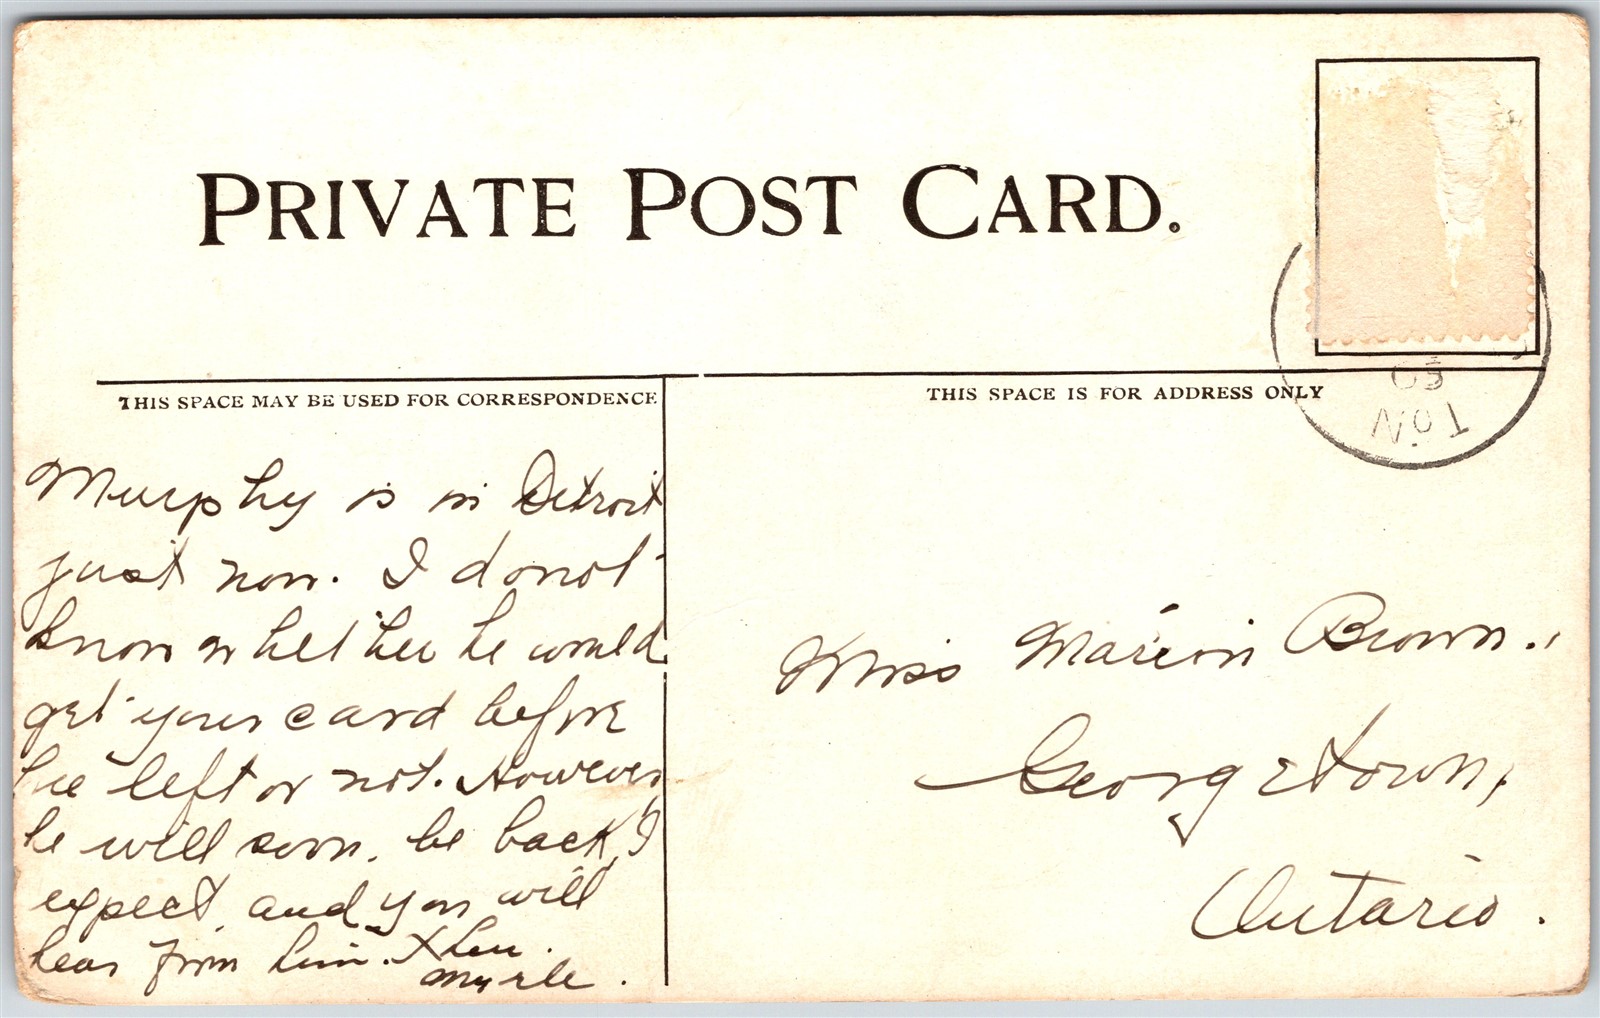 PRIVATE POST CARD.
THIS SPACE MAY BE USED FOR CORRESPONDENCE
THIS SPACE IS FOR ADDRESS ONLY
Murphy is in Detroit
just now. I do not
know whether he would
get your card before
he left or not. However
he will soon be back, I
expect and you will
hear from him then.
Myrle.
Miss Marion Brown.,
Georgetown,
Ontario.